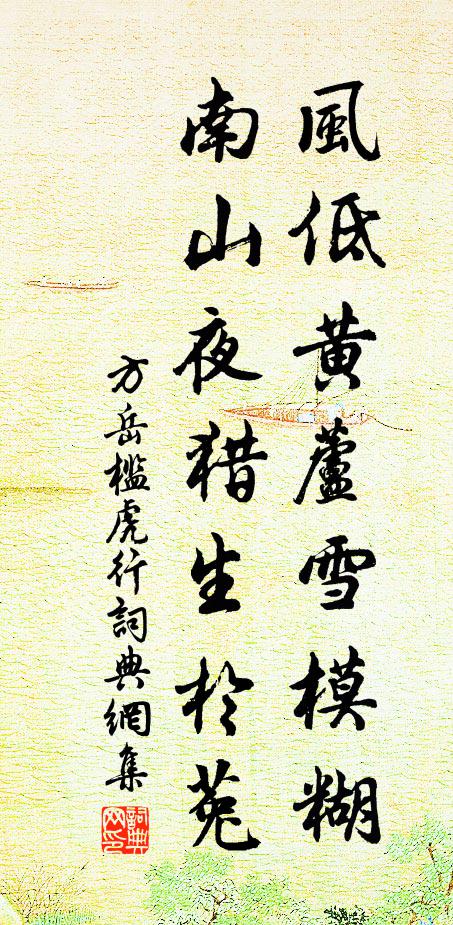 風低黄蘆雪模糊
南山夜猎生於菟
方岳檻虎行詞典網集
詞典網印